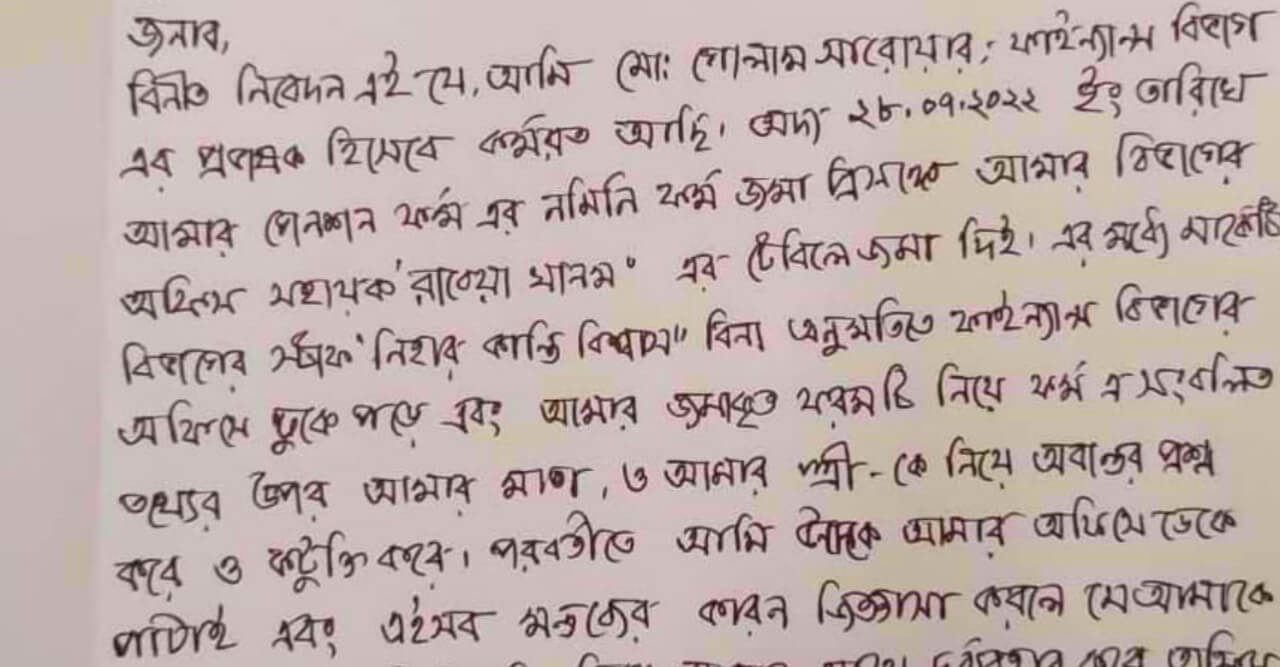 জনাব,
বিনীত নিবেদন এই যে, আমি মো: গোলাম সারোয়ার, ফাইন্যান্স বিভাগ
এর প্রভাষক হিসেবে কর্মরত আছি। অদ্য ২৮.০৭.২০২২ ইং তারিখে
আমার পেনশন ফর্ম এর নমিনি ফর্ম জমা প্রসঙ্গে আমার বিভাগের
অফিস সহায়ক 'রাবেয়া খানম' এর টেবিলে জমা দিই। এর মধ্যে মার্কেটিং
বিভাগের স্টাফ 'নিহার কান্তি বিশ্বাস" বিনা অনুমতিতে ফাইন্যান্স বিভাগের
অফিসে ঢুকে পড়ে এবং আমার জমাকৃত ফরমটি নিয়ে ফর্ম এ সংবলিত
তথ্যের উপর আমার মাতা, ও আমার স্ত্রী-কে নিয়ে অবান্তর প্রশ্ন
করে ও কটূক্তি করে। পরবর্তীতে আমি আমার অফিসে ডেকে
পাঠাই এবং এইসব মন্তব্যের কারন জিজ্ঞাসা করলে সে আমাকে